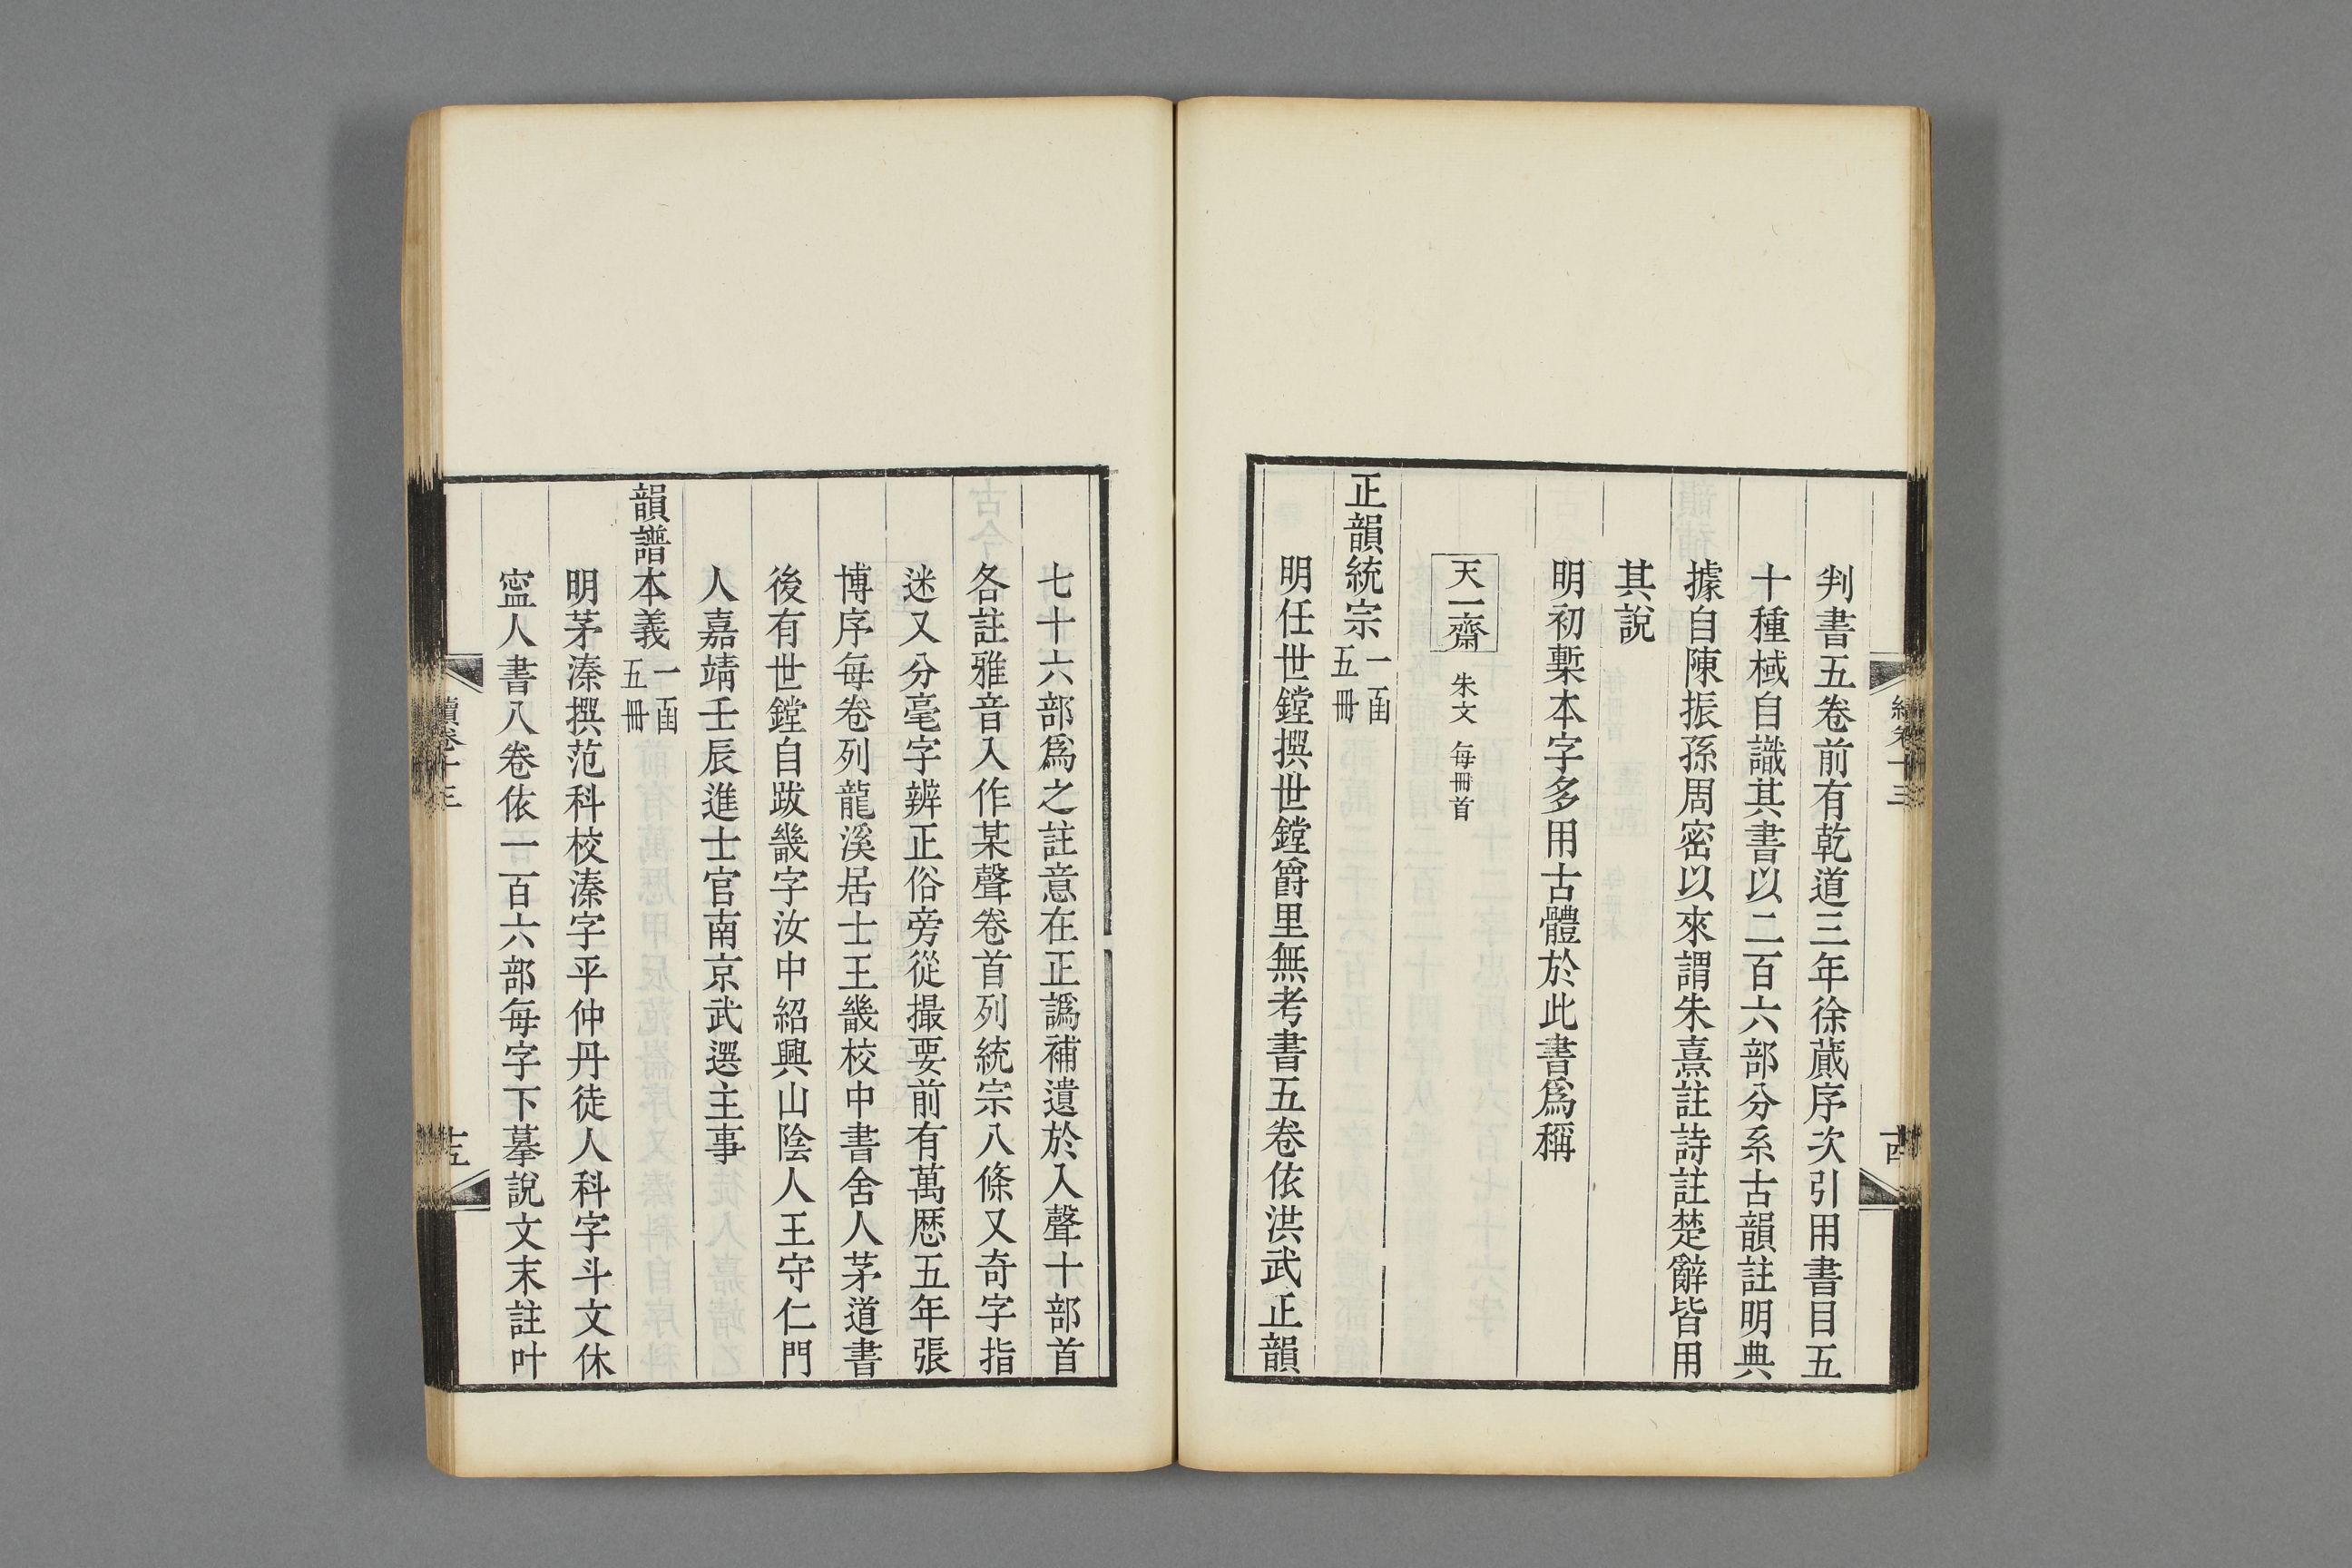 判書五卷前有乾道三年徐蕆序次引用書目五
十種棫自識其書以二百六部分系古韻註明典
據自陳振孫周密以來謂朱熹註詩註楚辭皆用
其說
明初槧本字多用古體於此書爲稱
天一齋 朱文 每冊首
正韻統宗 一函五冊
明任世鏜撰世鏜爵里無考書五卷依洪武正韻
七十六部爲之註意在正譌補遺於入聲十部首
各註雅音入作某聲卷首列統宗八條又奇字指
迷又分毫字辨正俗旁從撮要前有萬厯五年張
博序每卷列龍溪居士王畿校中書舍人茅道書
後有世鏜自跋畿字汝中紹興山陰人王守仁門
人嘉靖壬辰進士官南京武選主事
韻譜本義 一函五冊
明茅溱撰范科校溱字平仲丹徒人科字斗文休
寍人書八卷依一百六部每字下摹說文末註叶
續卷十三
十五